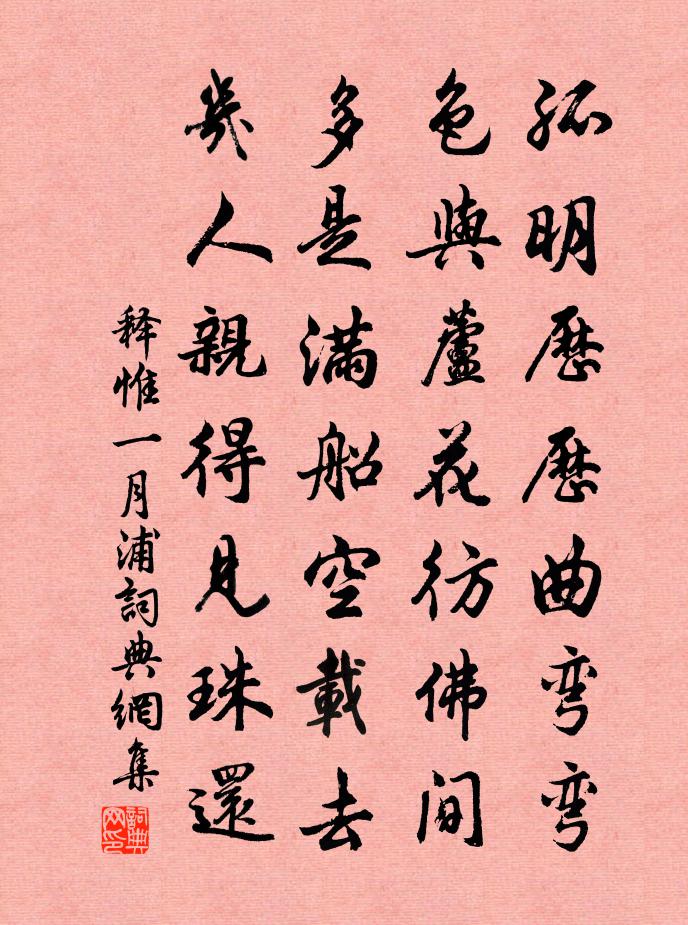 孤明歷歷曲弯弯
色與蘆花彷佛間
多是满船空載去
幾人親得見珠還
释惟一月浦詞典網集
詞典网印